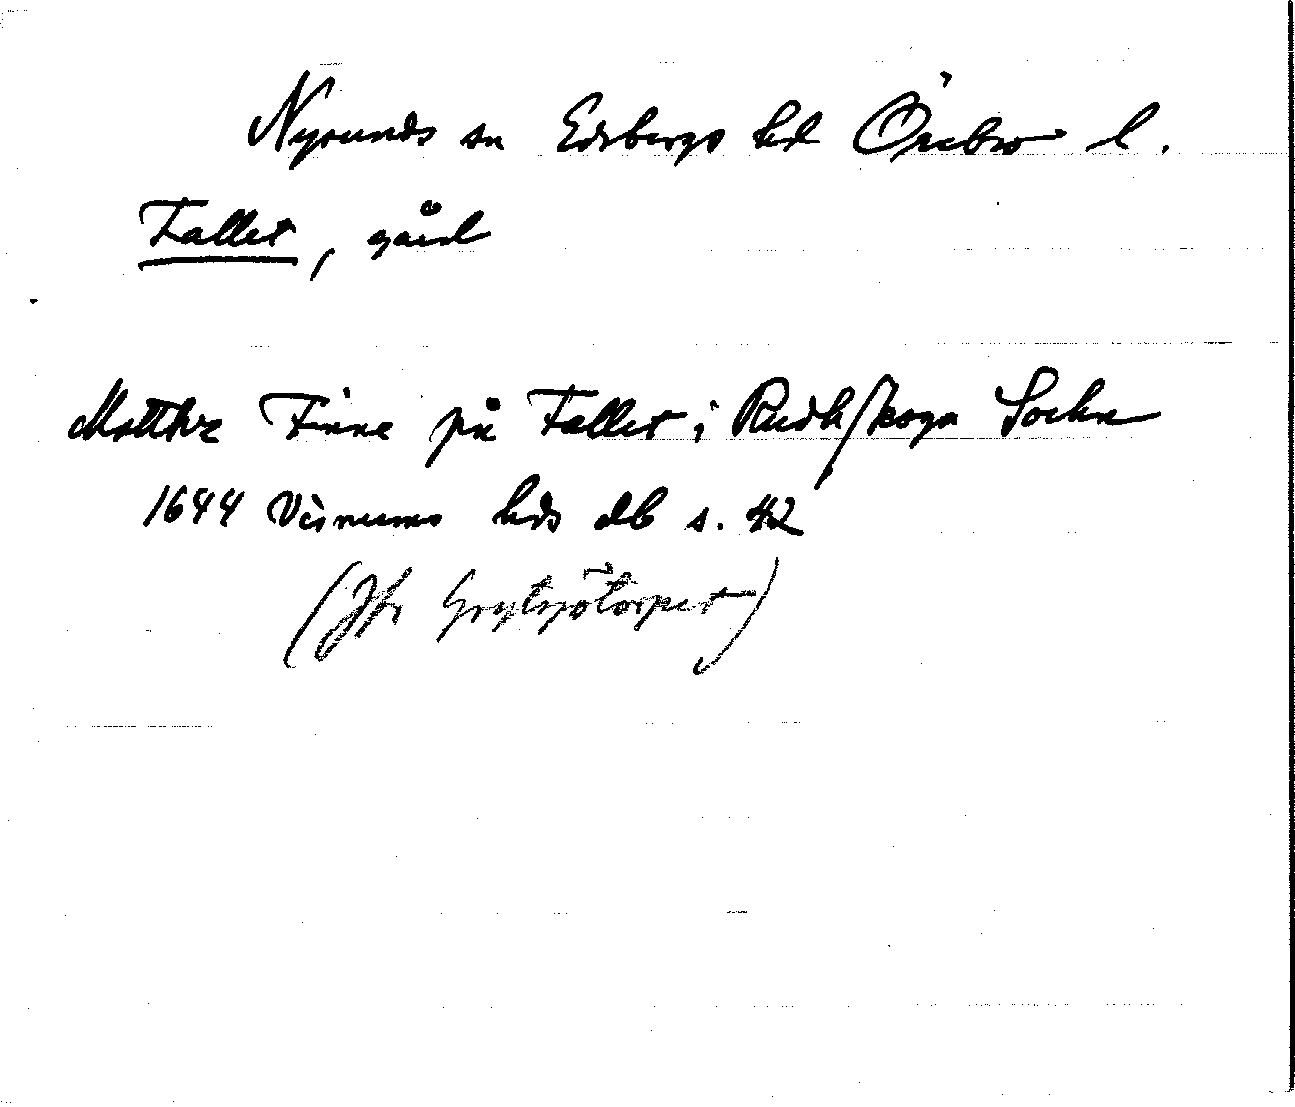 Nysunds sn Edsbergs hd Örebro l.
Fallet, gård
Matthz Finne på Fallet i Rudhskoga Sochn
1644 Visnums hds db s. 42
(Jfr Grytsjötorpet)